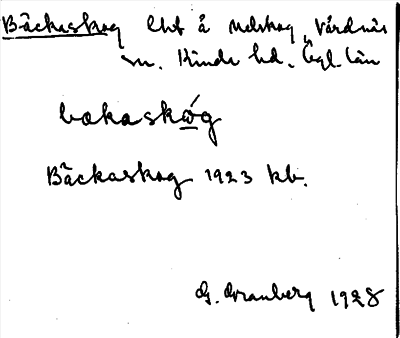 Bäckaskog lht å Utskog, Vårdnäs
sn. Kinds hd. Ögl. län
bækaskώ̲g
Bäckaskog 1923 kb.
G. Granberg 1928